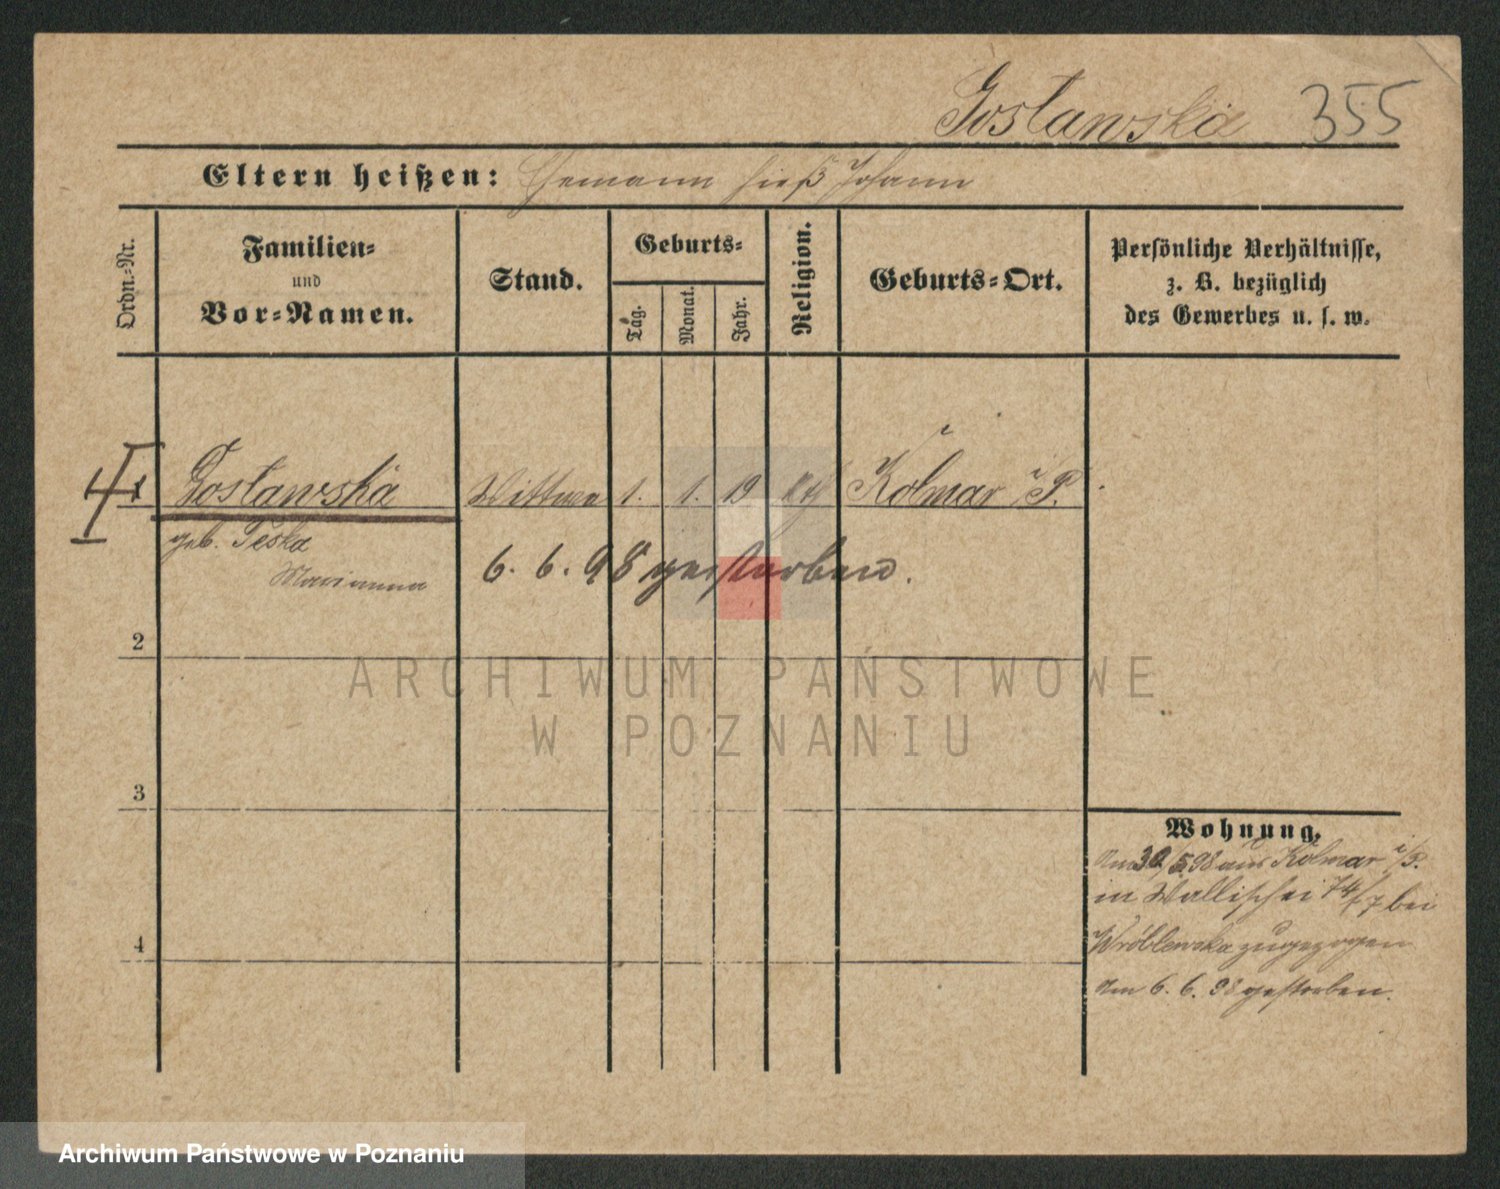 Goslawska 355
Eltern heißen: Ehemann hieß Johann
Ordn.-Nr.
Familien-
und
Vor-Namen.
Stand.
Geburts-
Tag.
Monat.
Jahr.
Religion.
Geburts-Ort.
Persönliche Verhältnisse,
z. B. bezüglich
des Gewerbes u. s. w.
1 Goslawska Wittwe 1. 1. 19 kth Kolmar i/P.
geb. Teska
Marianna
6. 6. 98 gestorben.
2
3
4
Wohnung.
Am 30/5 98 aus Kolmar i/P.
in Wallischei 74/ bei
Wróblewska zugezogen
Am 6. 6. 98 gestorben.
ARCHIWUM PAŃSTWOWE
W POZNANIU
Archiwum Państwowe w Poznaniu